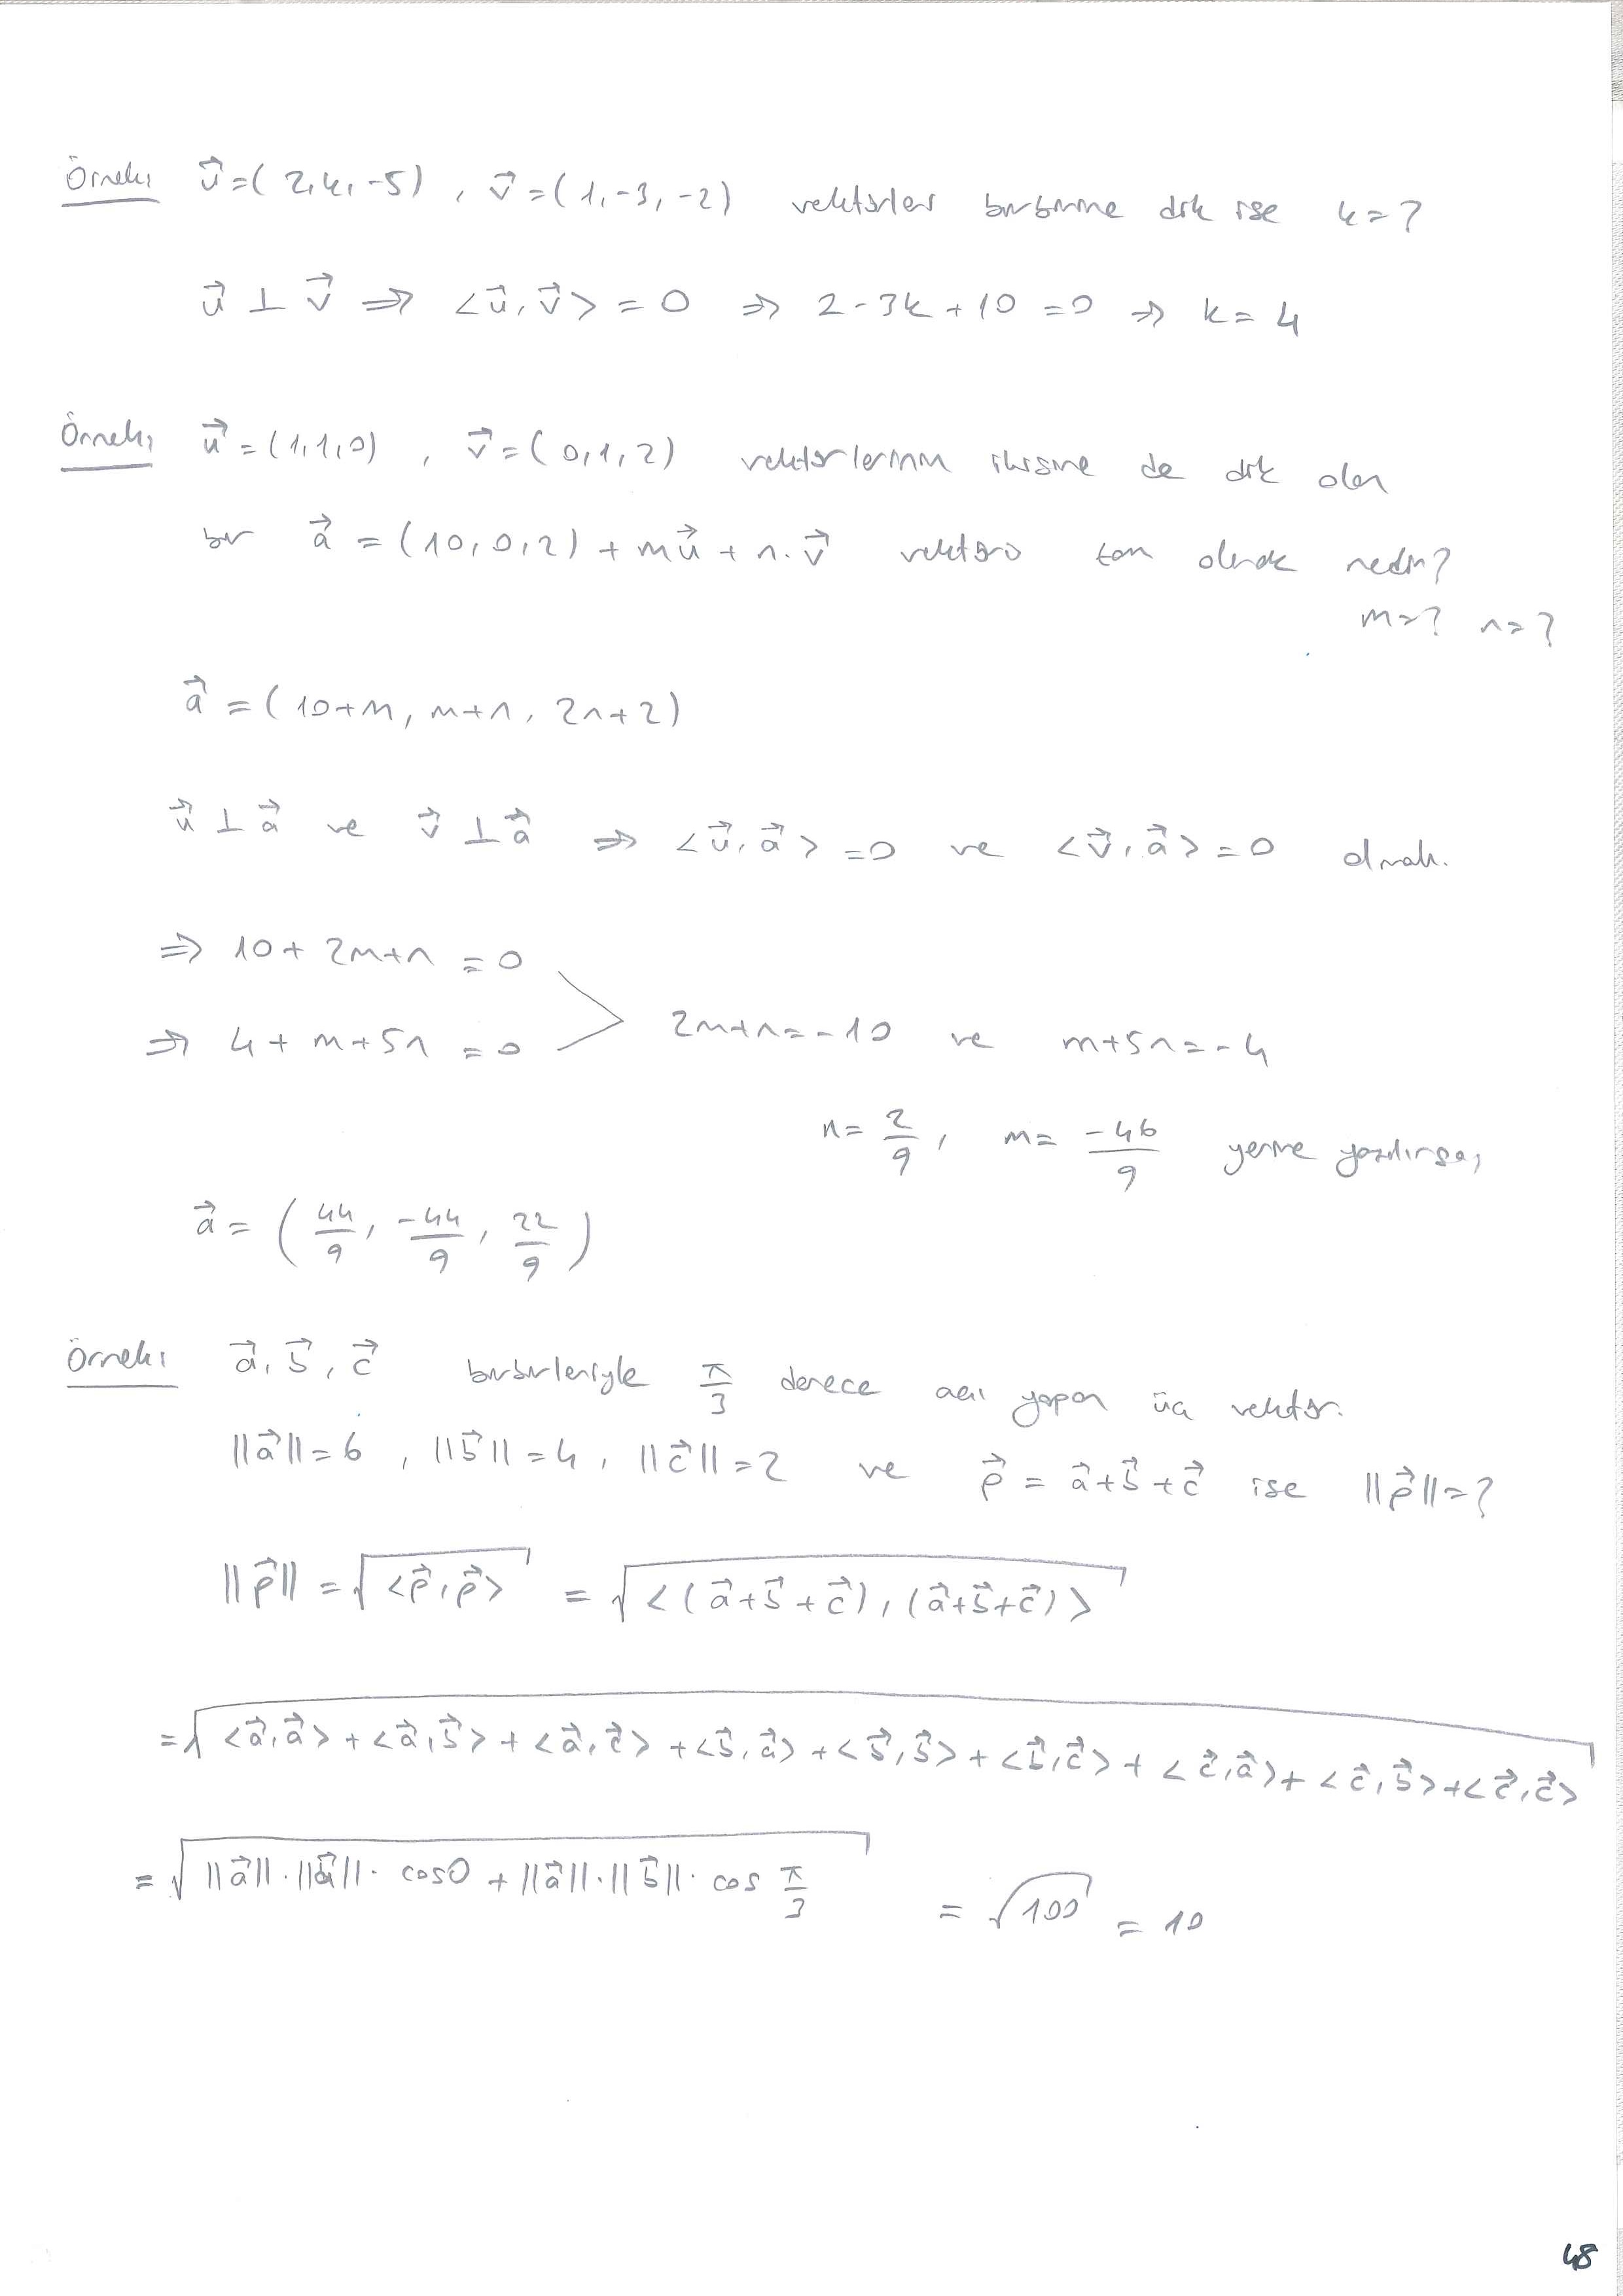 Örnek: u⃗=(2,k,-5) , v⃗=(1,-3,-2) vektörler birbirine dik ise k=?
u⃗ ⊥ v⃗ ⇒ <u⃗,v⃗> = 0 ⇒ 2-3k+10=0 ⇒ k=4
Örnek: u⃗=(1,1,0) , v⃗=(0,1,2) vektörlerinin ikisine de dik olan
bir a⃗ = (10,0,2)+mu⃗+n.v⃗ vektörü tam olarak nedir?
m=? n=?
a⃗=(10+m, m+n, 2n+2)
u⃗ ⊥ a⃗ ve v⃗ ⊥ a⃗ ⇒ <u⃗,a⃗>=0 ve <v⃗,a⃗>=0 olmalı.
⇒ 10+2m+n=0
⇒ 4+m+5n=0 2m+n=-10 ve m+5n=-4
n=2/9, m=-46/9 yerine yazılırsa;
a⃗=(44/9, -44/9, 22/9)
Örnek: a⃗, b⃗, c⃗ birbirleriyle π/3 derece açı yapan üç vektör.
||a⃗||=6 , ||b⃗||=4 , ||c⃗||=2 ve p⃗ = a⃗+b⃗+c⃗ ise ||p⃗||=?
||p⃗|| = √<p⃗,p⃗> = √<(a⃗+b⃗+c⃗),(a⃗+b⃗+c⃗)>
=√<a⃗,a⃗>+<a⃗,b⃗>+<a⃗,c⃗>+<b⃗,a⃗>+<b⃗,b⃗>+<b⃗,c⃗>+<c⃗,a⃗>+<c⃗,b⃗>+<c⃗,c⃗>
=√||a⃗||.||a⃗||.cos0+||a⃗||.||b⃗||.cos π/3 = √100 = 10
48